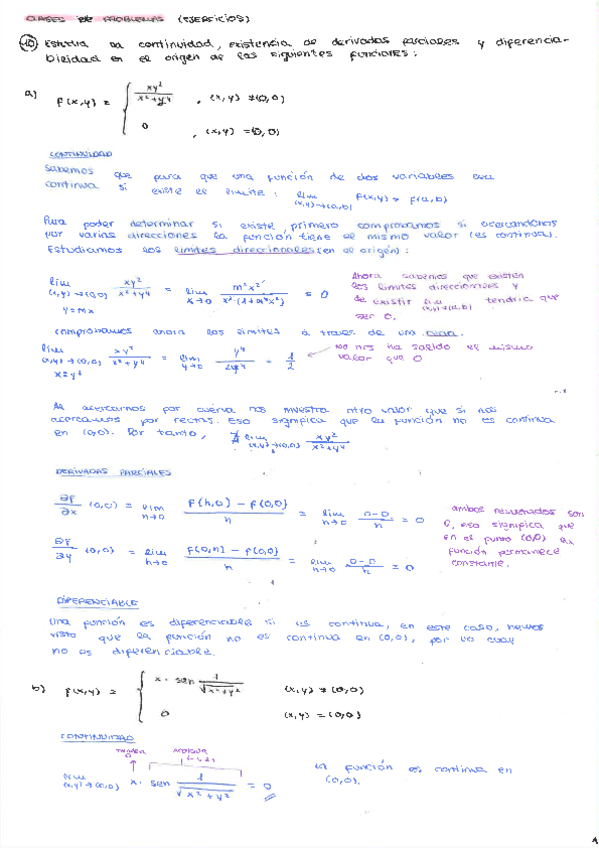 CLASES DE PROBLEMAS (EJERCICIOS)
10 Estudia la continuidad, existencia de derivadas parciales y diferencia-
bilidad en el origen de las siguientes funciones:
a) f(x,y) = { xy²/(x²+y⁴) , (x,y) ≠ (0,0)
0 , (x,y) = (0,0)
CONTINUIDAD
Sabemos que para que una función de dos variables sea
continua si existe el límite: lim (x,y)→(a,b) f(x,y) = f(a,b)
Para poder determinar si existe, primero comprobamos si acercándonos
por varias direcciones la función tiene el mismo valor (es continua).
Estudiamos los límites direccionales (en el origen):
lim (x,y)→(0,0) y=mx xy²/(x²+y⁴) = lim x→0 m²x³/(x²·(1+m⁴x²)) = 0
Ahora sabemos que existen
los límites direccionales y
de existir lim (x,y)→(a,b) tendría que
ser 0.
Comprobamos ahora los límites a través de una
lim (x,y)→(0,0) x=y² xy²/(x²+y⁴) = lim y→0 y⁴/2y⁴ = 1/2
no nos ha salido el mismo
valor que 0
Al acercarnos por curva nos muestra otro valor que si nos
acercamos por rectas. Eso significa que la función no es continua
en (0,0). Por tanto, ∄ lim (x,y)→(0,0) xy²/(x²+y⁴)
DERIVADAS PARCIALES
∂f/∂x (0,0) = lim h→0 (f(h,0) - f(0,0))/h = lim h→0 (0-0)/h = 0
∂f/∂y (0,0) = lim h→0 (f(0,h) - f(0,0))/h = lim h→0 (0-0)/h = 0
ambos resultados son
0, eso significa que
en el punto (0,0) la
función permanece
constante.
DIFERENCIABLE
Una función es diferenciable si es continua, en este caso, hemos
visto que la función no es continua en (0,0), por lo cual
no es diferenciable.
b) f(x,y) = { x · sen 1/√(x²+y²) (x,y) ≠ (0,0)
0 (x,y) = (0,0)
CONTINUIDAD
lim (x,y)→(0,0) x · sen 1/√(x²+y²) = 0
La función es continua en
(0,0).